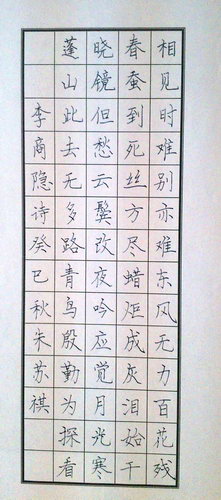 相见时难别亦难东风无力百花残
春蚕到死丝方尽蜡炬成灰泪始干
晓镜但愁云鬓改夜吟应觉月光寒
蓬山此去无多路青鸟殷勤为探看
李商隐诗癸巳秋朱苏祺